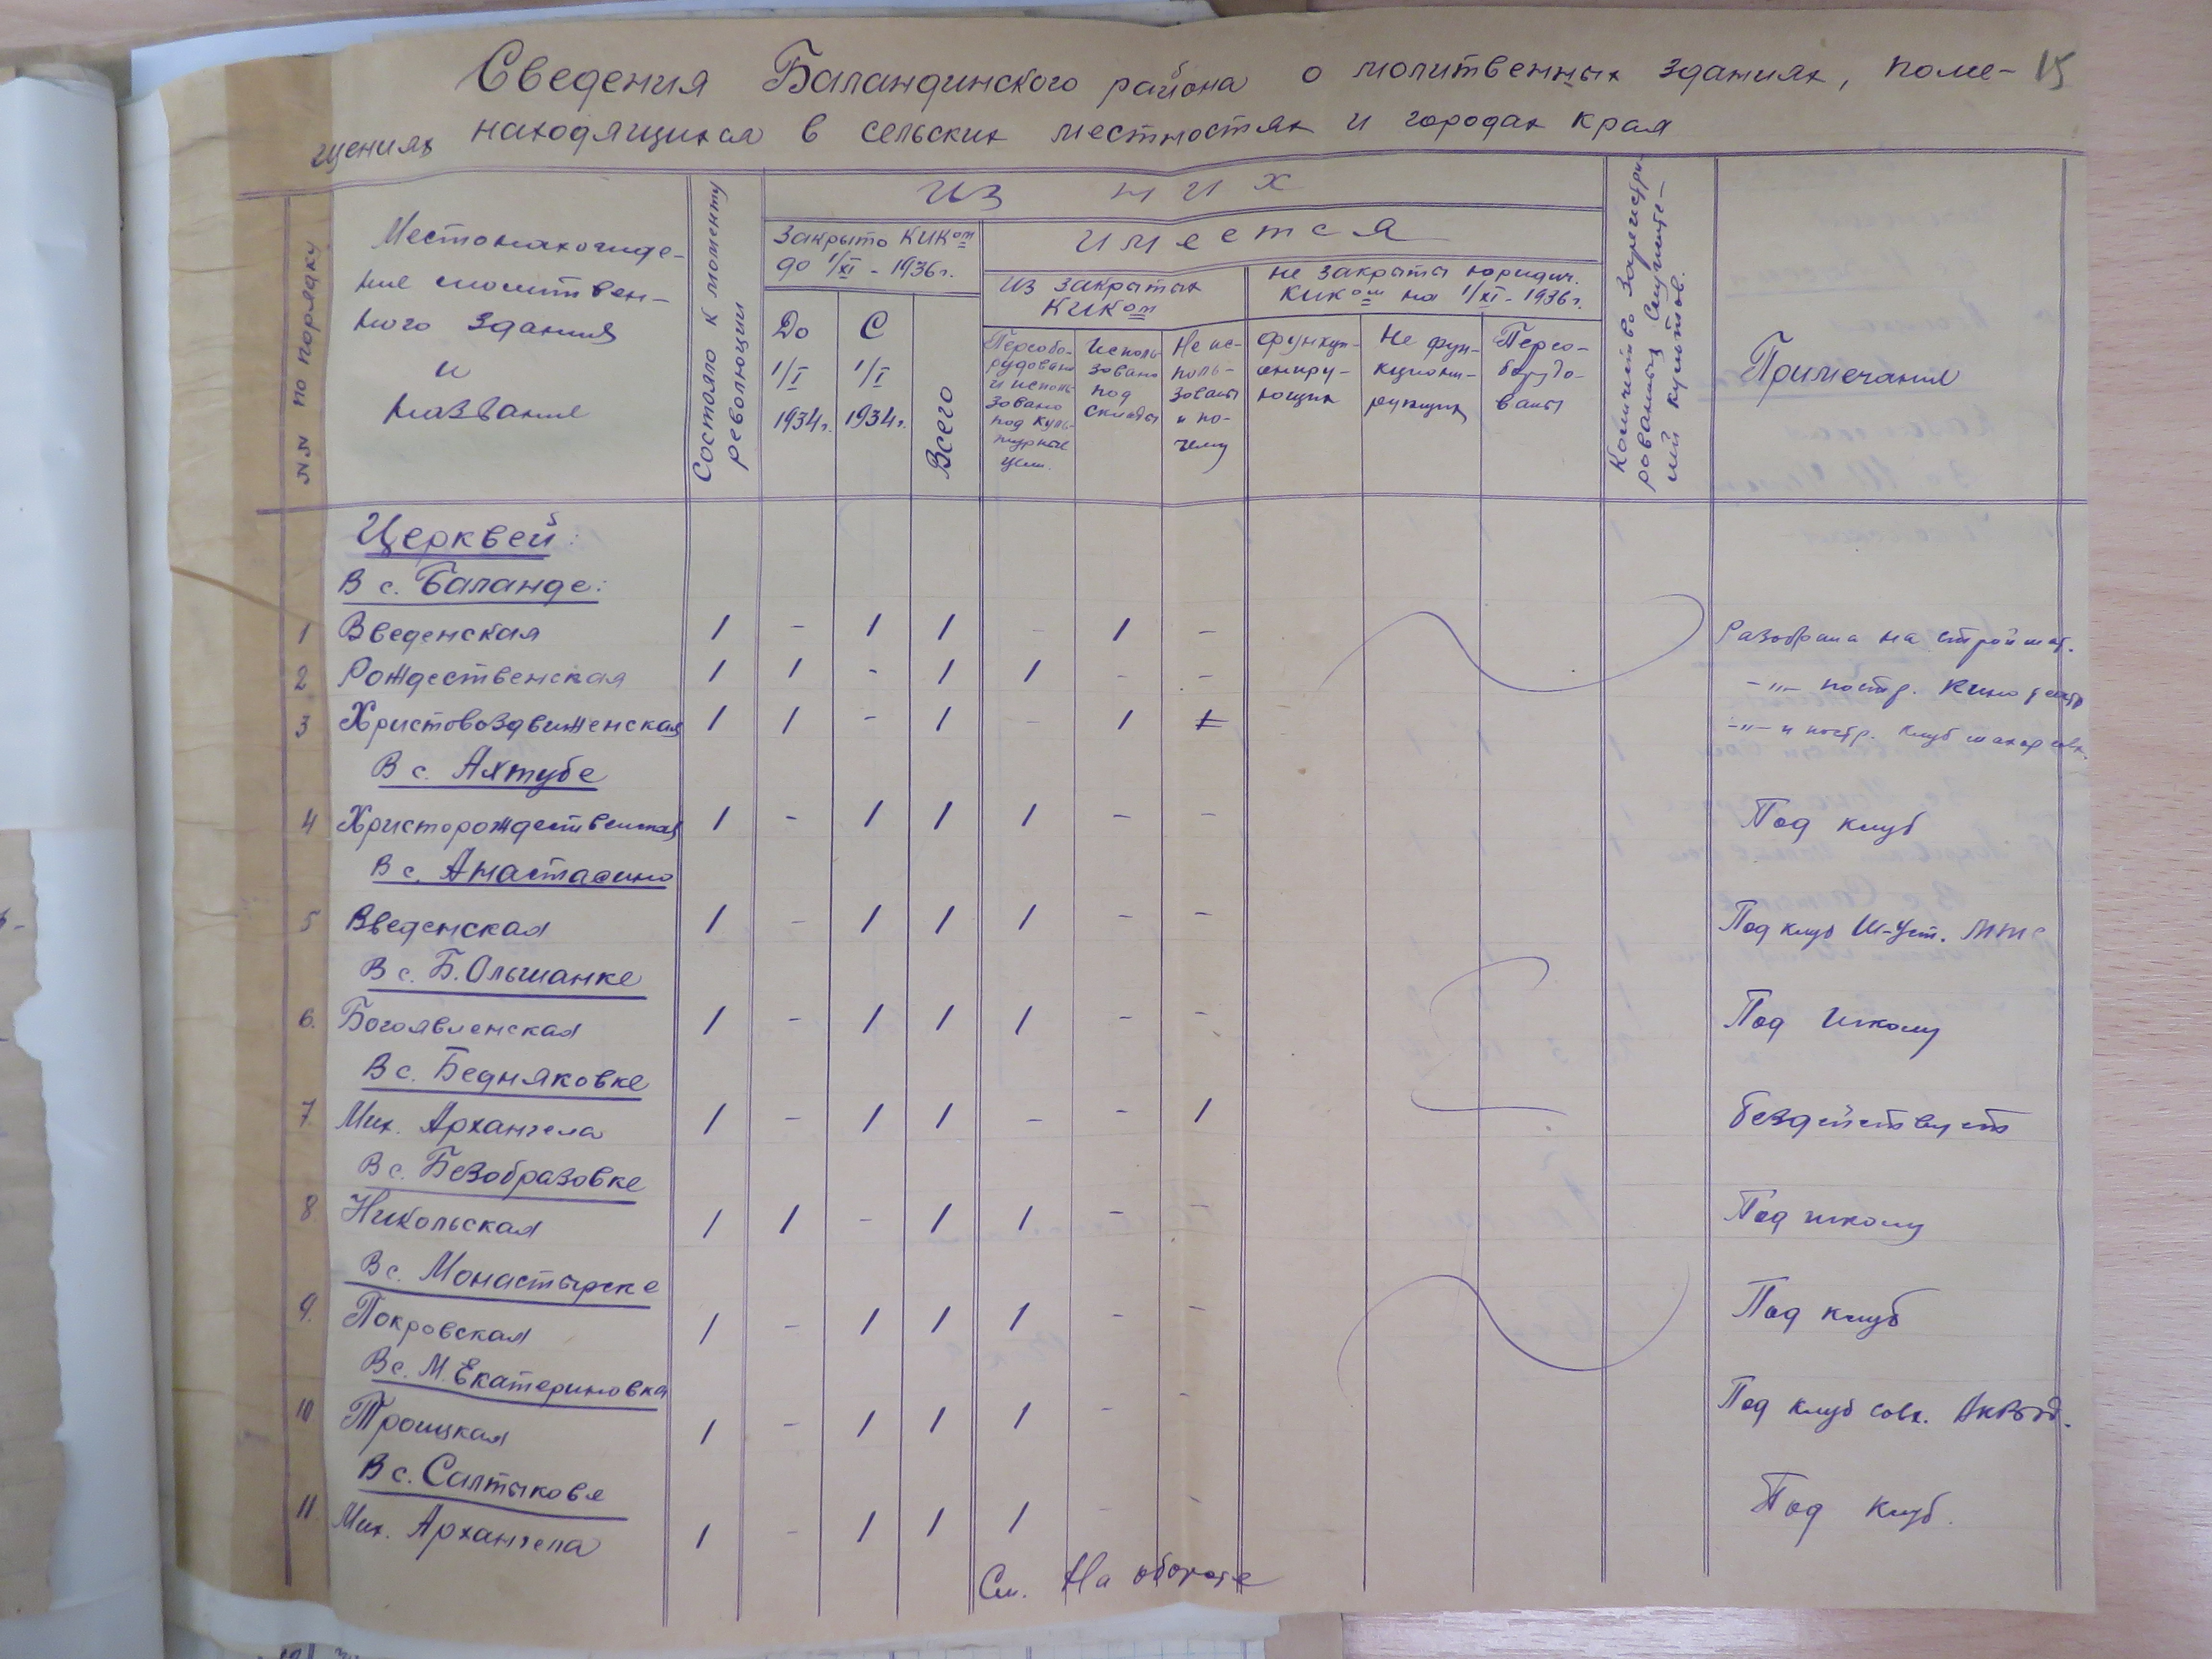 Сведения Баландинского района о молитвенных зданиях, поме- 15
щениях находящихся в сельских местностях и городах края
NN по порядку
Местонахожде-
ние молитвен-
ного здания
и
название
Состояло к моменту
революции
Из них
Закрыто КИКом
до 1/XI - 1936 г.
До
1/I
1934 г.
С
1/I
1934 г.
Всего
имеется
из закрытых
КИКом
Переобо-
рудовано
и исполь-
зовано
под куль-
турные
цели.
Исполь-
зовано
под
склады
Не ис-
поль-
зованы
и по-
чему
не закрыты юридич.
КИКом на 1/XI - 1936 г.
функци-
онирую-
ющих
Не фун-
кциони-
рующих
Перео-
борудо-
ваны
Количество зарегистри-
рованных служите-
лей культов.
Примечание
Церквей:
В с. Баланде:
1 Введенская 1 - 1 1 - 1 - Разобрана на строймат.
2 Рождественская 1 1 - 1 1 - - -"- постр. Кинотеатр
3 Христовоздвиженская 1 1 - 1 - 1 1 -"- и постр. клуб
В с. Ахтубе
4 Христорождественская 1 - 1 1 1 - - Под клуб
В с. Анастасино
5 Введенская 1 - 1 1 1 - - Под клуб Ш-Уст. МТС
В с. Б. Ольшанке
6. Богоявленская 1 - 1 1 1 - - Под школу
В с. Бедняковке
7. Мих. Архангела 1 - 1 1 - - 1 бездействует
В с. Безобразовке
8. Никольская 1 1 - 1 1 - - Под школу
В с. Монастырске
9. Покровская 1 - 1 1 1 - - Под клуб
В с. М. Екатериновка
10 Троицкая 1 - 1 1 1 - - Под клуб совх.
В с. Салтыкове
11. Мих. Архангела 1 - 1 1 1 - - Под клуб.
См. На обороте